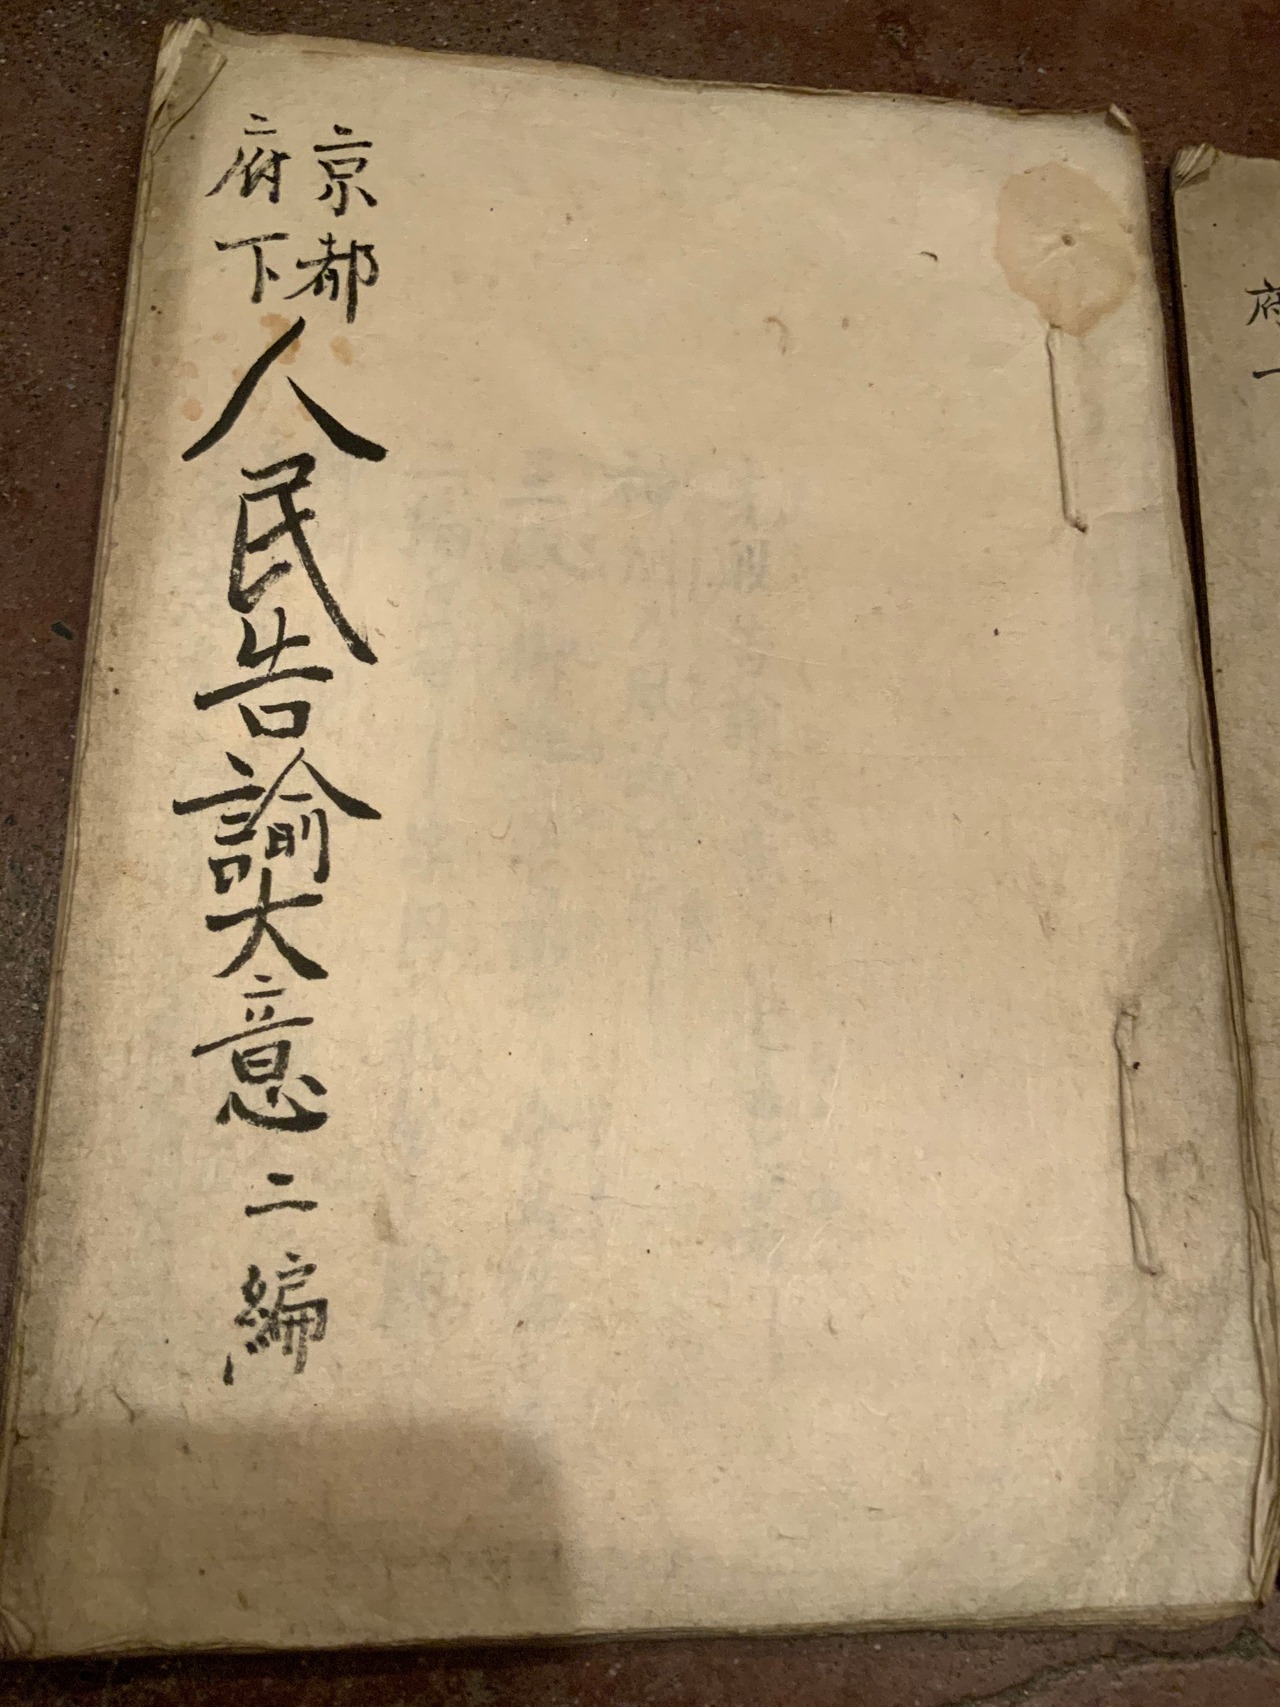 京都
府下
人民告諭大意二編
府